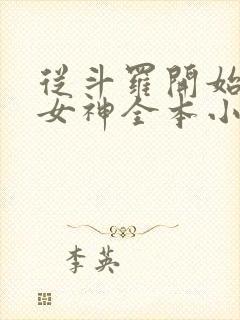 從斗羅開始
女神全本小
李英